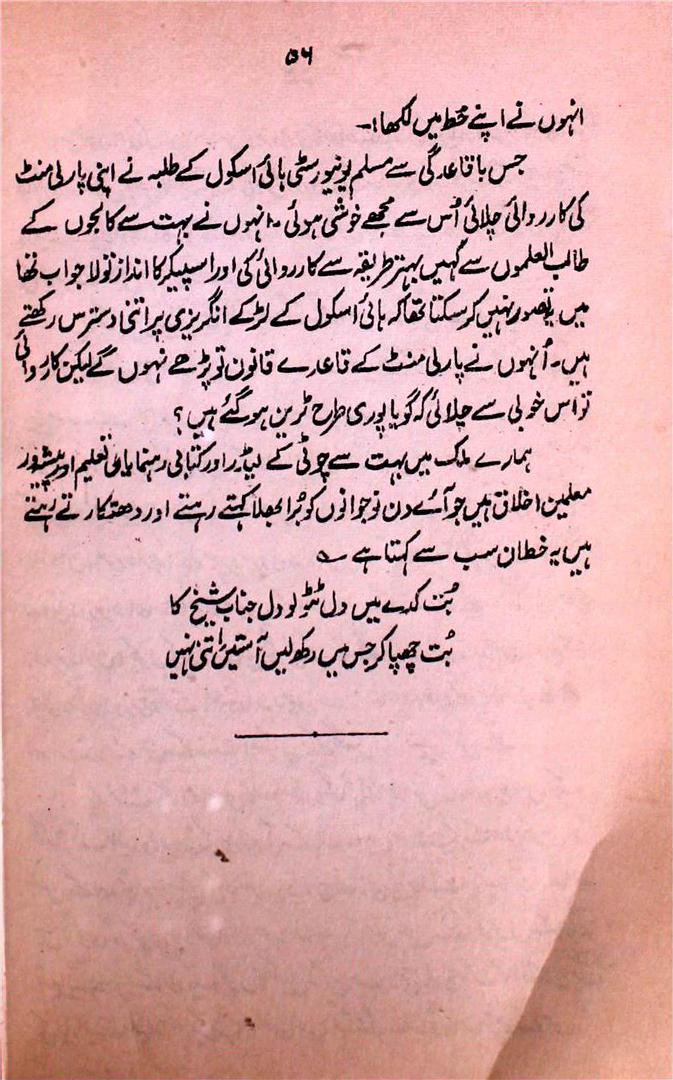 ۵۶
انہوں نے اپنے خط میں لکھا:۔
جس باقاعدگی سے مسلم یونیورسٹی ہائی اسکول کے طلبہ نے اپنی پارلی منٹ
کی کارروائی چلائی اُس سے مجھے خوشی ہوئی۔ انہوں نے بہت سے کالجوں کے
طالب العلموں سے کہیں بہتر طریقہ سے کارروائی کی اور اسپیکر کا انداز تو لاجواب تھا
میں تصور نہیں کر سکتا تھا کہ ہائی اسکول کے لڑکے انگریزی پر اتنی دسترس رکھتے
ہیں۔ اُنہوں نے پارلی منٹ کے قاعدے قانون تو پڑھے نہوں گے لیکن کاروائی
تو اس خوبی سے چلائی کہ گویا پوری طرح ٹرین ہو گئے ہیں؟
ہمارے ملک میں بہت سے چوٹی کے لیڈر اور کتابی رہنما یا تعلیم اور پیشہ ور
معلمین اخلاق ہیں جو آئے دن نوجوانوں کو بُرا بھلا کہتے رہتے اور دھتکارتے رہتے
ہیں یہ خط ان سب سے کہتا ہے ؎
بُت کدے میں دل ٹٹولو دل جناب شیخ کا
بُت چھپا کر جس میں رکھ لیں آستیں اتنی نہیں